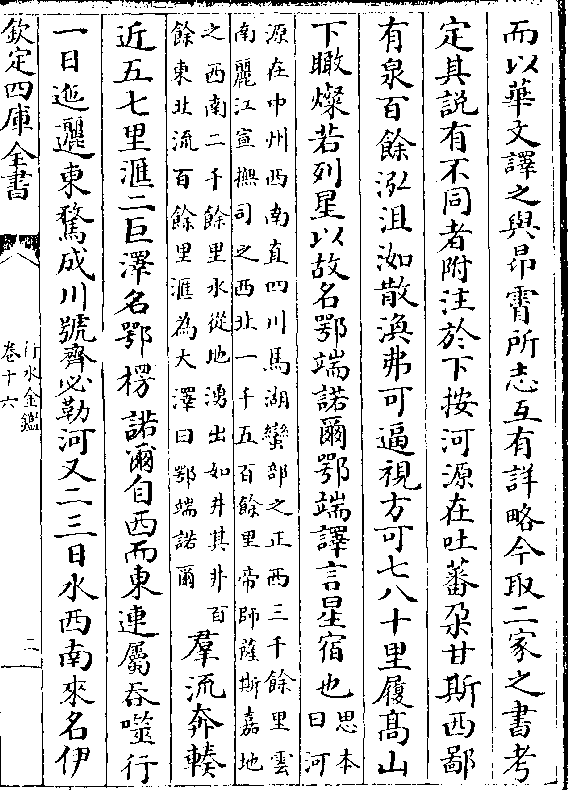 而以華文譯之與昂霄所志互有詳略今取二家之書考
定其説有不同者附注於下按河源在吐蕃朶甘斯西鄙
有泉百餘泓沮洳散渙弗可逼視方可七八十里履髙山
下瞰燦若列星以故名鄂端諾爾鄂端譯言星宿也思本曰河
源在中州西南直四川馬湖蠻部之正西三千餘里雲
南麗江宣撫司之西北一千五百餘里帝師薩斯嘉地
之西南二千餘里水從地湧出如井其井百
餘東北流百餘里滙為大澤曰鄂端諾爾
羣流奔輳
近五七里滙二巨澤名鄂楞諾爾自西而東連屬吞噬行
一日迤邐東騖成川號齊必勒河又二三日水西南來名伊
欽定四庫全書
行水金鑑
卷十六
二